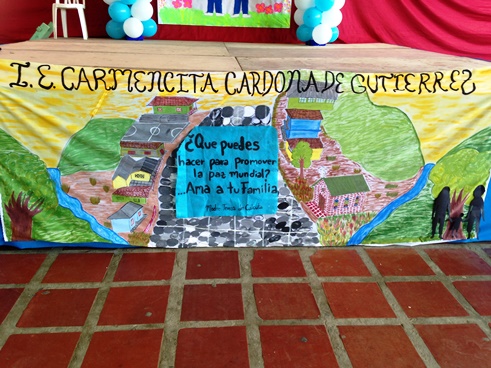 I.E. CARMENCITA CARDONA DE GUTIERREZ
¿Que puedes
hacer para promover
la paz mundial?
...Ama a tu familia
Madre Teresa de Calcuta